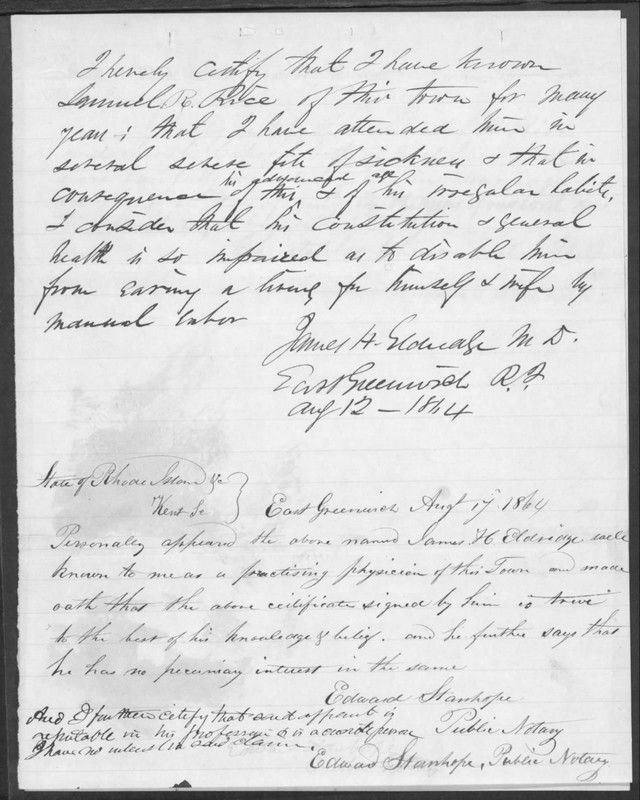 I hereby certify that I have known
Samuel R. Rice of this town for many
years; that I have attended him in
several severe fits of sickness & that in
his advanced age
consequence of this, & of his irregular habits,
I consider that his constitution & general
health is so impaired as to disable him
from earning a living for himself & wife by
manual labor
James H. Eldredge M. D.
East Greenwich R. I.
Aug 12 - 1864
State of Rhode Island &c
Kent Sc } East Greenwich Augt 17. 1864
Personally appeared the above named James H Eldridge well
known to me as a practising physician of this Town and made
oath that the above certificate signed by him is true
to the best of his knowledge & belief. and he further says that
he has no pecuniary interest in the same
Edward Stanhope
Public Notary
And I further certify that said affiant is
reputable in his profession & is a
I have no interest in said claim.
Edward Stanhope, Public Notary